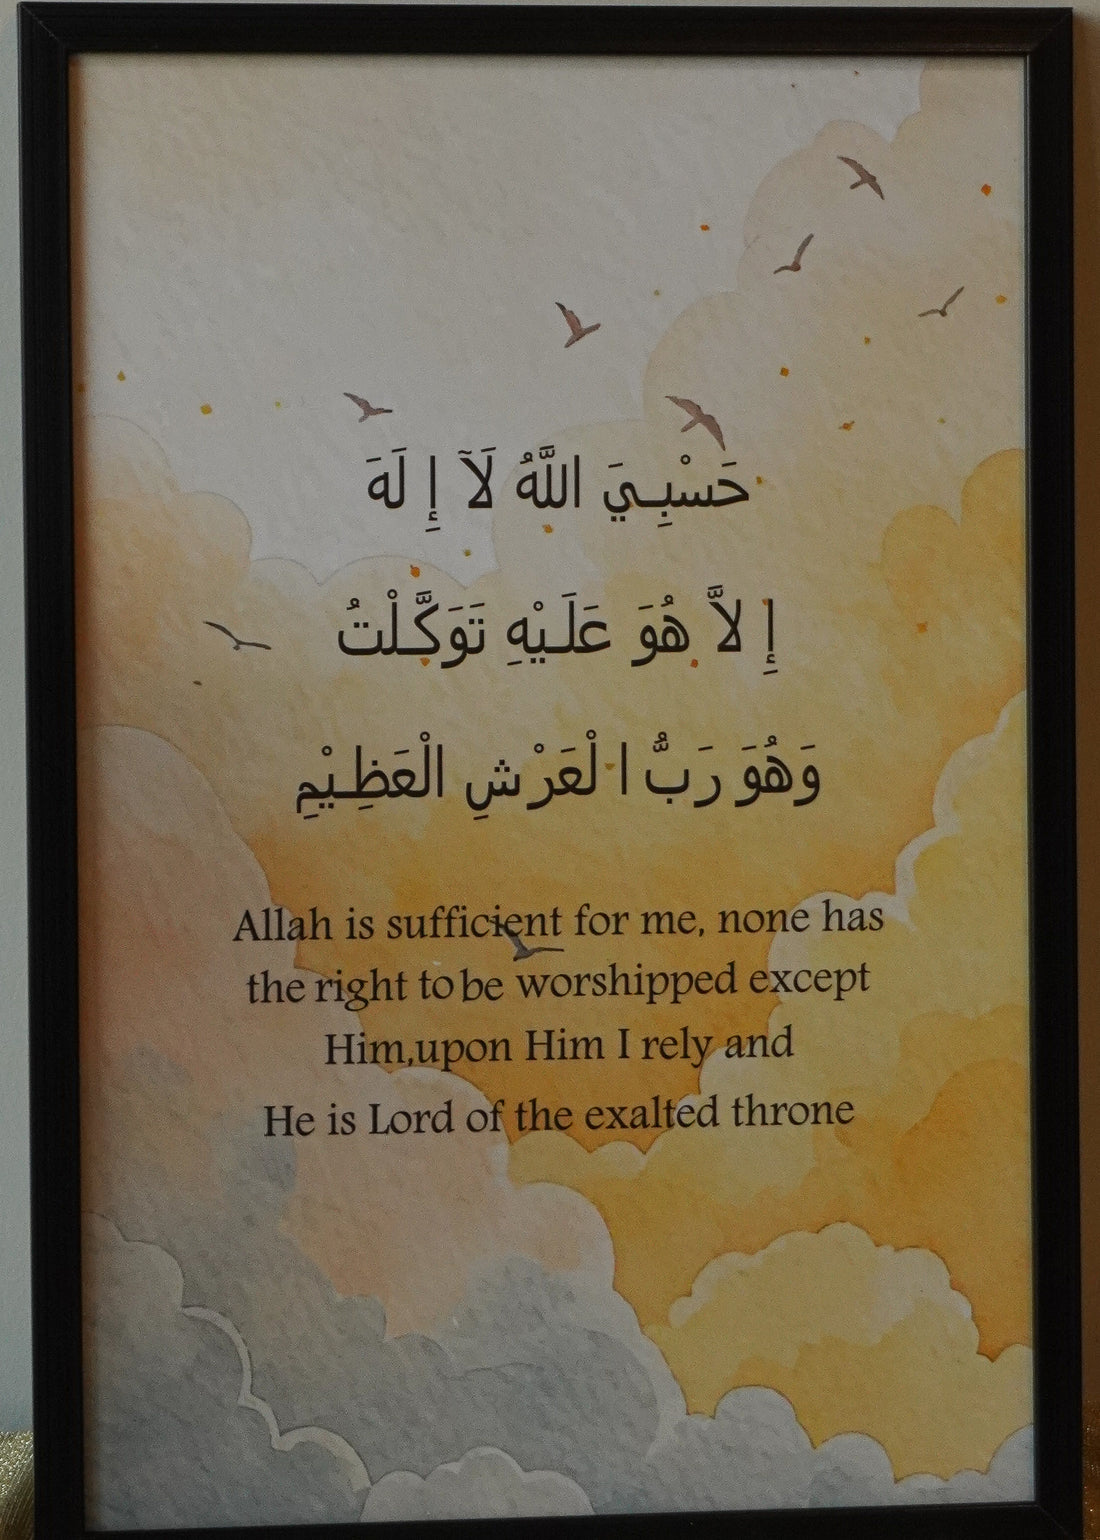 حَسْبِيَ اللَّهُ لَآ إِلَهَ
إِلاَّ هُوَ عَلَيْهِ تَوَكَّلْتُ
وَهُوَ رَبُّ الْعَرْشِ الْعَظِيْمِ
Allah is sufficient for me, none has
the right to be worshipped except
Him,upon Him I rely and
He is Lord of the exalted throne